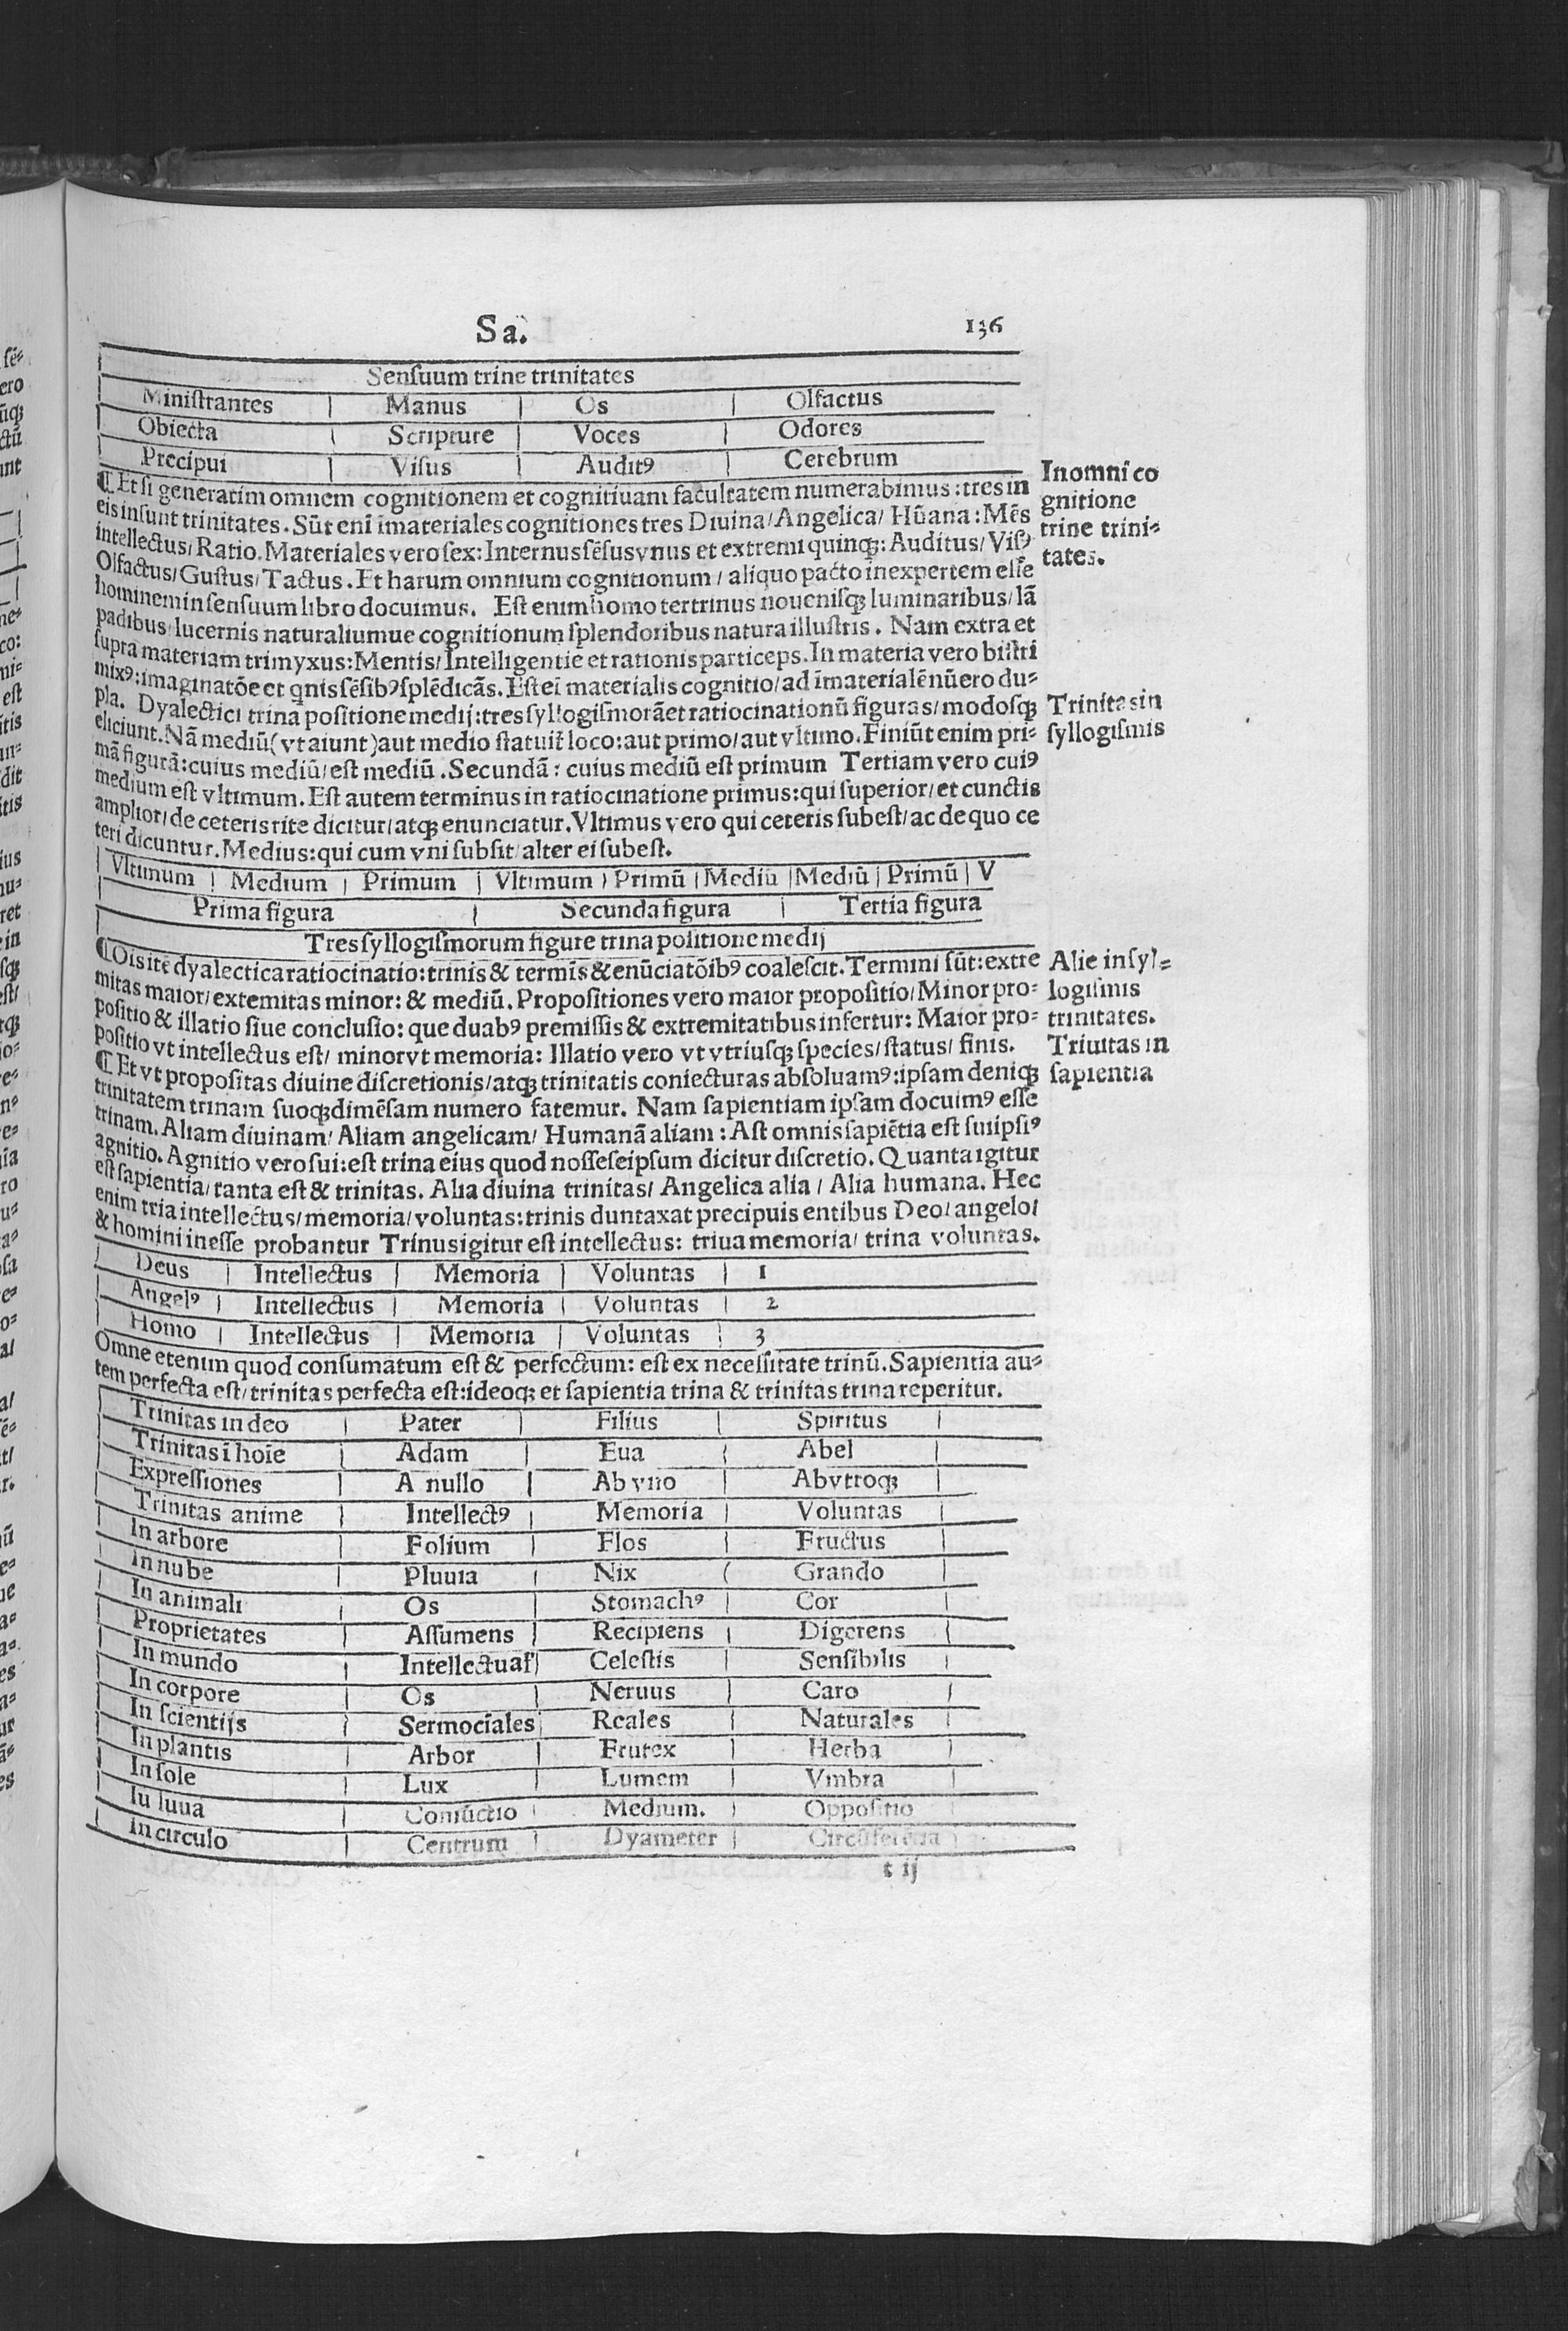 Sa. 136
Sensuum trine trinitates
Ministrantes | Manus | Os | Olfactus
Obiecta | Scripture | Voces | Odores
Precipui | Visus | Auditꝰ | Cerebrum
¶Et si generatim omnem cognitionem et cognitiuam facultatem numerabimus: tres in
eis insunt trinitates. Sūt enī īmateriales cognitiones tres Diuina/ Angelica/ Hūana: Mēs
intellectus/ Ratio. Materiales vero sex: Internus sēsus vnus et extremi quinqꝫ: Auditus/ Visꝰ
Olfactus/ Gustus/ Tactus. Et harum omnium cognitionum/ aliquo pacto inexpertem esse
hominem in sensuum libro docuimus. Est enim homo tertrinus nouenisqꝫ luminaribus/ lā
padibus/ lucernis naturaliumue cognitionum splendoribus natura illustris. Nam extra et
supra materiam trimyxus: Mentis/ Intelligentie et rationis particeps. In materia vero bistri
mixꝰ: imaginatōe et qnis sēsibꝰ splēdicās. Est eī materialis cognitio/ ad īmaterialē nūero du⸗
pla. Dyalectici trina positione medij: tres syllogismorā et ratiocinationū figuras/ modosqꝫ
eliciunt. Nā mediū (vt aiunt) aut medio statuit loco: aut primo/ aut vltimo. Finiūt enim pri⸗
mā figurā: cuius mediū/ est mediū. Secundā: cuius mediū est primum Tertiam vero cuiꝰ
medium est vltimum. Est autem terminus in ratiocinatione primus: qui superior/ et cunctis
amplior/ de ceteris rite dicitur/ atqꝫ enunciatur. Vltimus vero qui ceteris subest/ ac de quo ce
teri dicuntur. Medius: qui cum vni subsit/ alter ei subest.
Vltimum | Medium | Primum | Vltimum | Primū | Mediū | Mediū | Primū | V
Prima figura | Secunda figura | Tertia figura
Tres syllogismorum figure trina positione medij
¶Ois ite dyalectica ratiocinatio: trinis & termīs & enūciatōibꝰ coalescit. Termini sūt: extre
mitas maior/ extemitas minor: & mediū. Propositiones vero maior propositio/ Minor pro⸗
positio & illatio siue conclusio: que duabꝰ premissis & extremitatibus infertur: Maior pro⸗
positio vt intellectus est/ minor vt memoria: Illatio vero vt vtriusqꝫ species/ status/ finis.
¶Et vt propositas diuine discretionis/ atqꝫ trinitatis coniecturas absoluamꝰ: ipsam deniqꝫ
trinitatem trinam suoqꝫ dimēsam numero fatemur. Nam sapientiam ipsam docuimꝰ esse
trinam. Aliam diuinam/ Aliam angelicam/ Humanā aliam: Ast omnis sapiētia est suiipsiꝰ
agnitio. Agnitio vero sui: est trina eius quod nosse seipsum dicitur discretio. Quanta igitur
est sapientia/ tanta est & trinitas. Alia diuina trinitas/ Angelica alia/ Alia humana. Hec
enim tria intellectus/ memoria/ voluntas: trinis duntaxat precipuis entibus Deo/ angelo/
& homini inesse probantur Trinus igitur est intellectus: triua memoria/ trina voluntas.
Deus | Intellectus | Memoria | Voluntas | 1
Angelꝰ | Intellectus | Memoria | Voluntas | 2
Homo | Intellectus | Memoria | Voluntas | 3
Omne etenim quod consumatum est & perfectum: est ex necessitate trinū. Sapientia au⸗
tem perfecta est/ trinitas perfecta est: ideoqꝫ et sapientia trina & trinitas trina reperitur.
Trinitas in deo | Pater | Filius | Spiritus |
Trinitas ī hoīe | Adam | Eua | Abel |
Expressiones | A nullo | Ab vno | Ab vtroqꝫ |
Trinitas anime | Intellectꝰ | Memoria | Voluntas |
In arbore | Folium | Flos | Fructus |
In nube | Pluuia | Nix | Grando |
In animali | Os | Stomachꝰ | Cor |
Proprietates | Assumens | Recipiens | Digerens |
In mundo | Intellectual' | Celestis | Sensibilis |
In corpore | Os | Neruus | Caro |
In scientijs | Sermociales | Reales | Naturales |
In plantis | Arbor | Frutex | Herba |
In sole | Lux | Lumem | Vmbra |
Iu luua | Coniūctio | Medium. | Oppositio
In circulo | Centrum | Dyameter | Circūferētia
t ij
In omni co
gnitione
trine trini⸗
tates.
Trinitas in
syllogismis
Alie in syl⸗
logismis
trinitates.
Triuitas in
sapientia